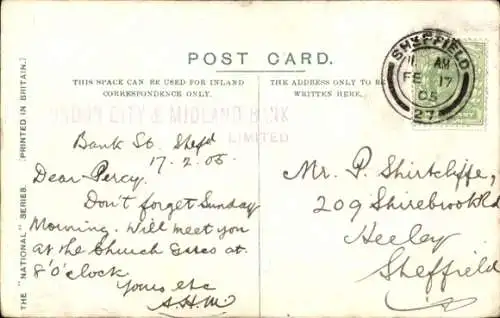 POST CARD.
THIS SPACE CAN BE USED FOR INLAND
CORRESPONDENCE ONLY.
THE ADDRESS ONLY TO BE
WRITTEN HERE.
CITY & MIDLAND BANK
LIMITED
Bank St. Sheffd
17.2.05.
Dear Percy.
Don't forget Sunday
Morning. Will meet you
at the Church Gates at
8 o'clock
Yours etc
A.H.M.
Mr. P. Shirtcliffe,
209 Shirebrook Rd
Heeley
Sheffield
SHEFFIELD
11 AM
FE 17
05
27
THE "NATIONAL" SERIES. (PRINTED IN BRITAIN.)